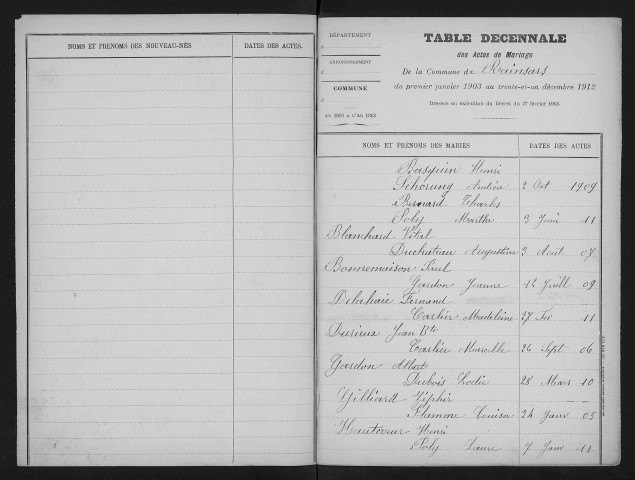 NOMS ET PRÉNOMS DES NOUVEAU-NÉS DATES DES ACTES.
DÉPARTEMENT
d
ARRONDISSEMENT
d
COMMUNE
d
AN 1903 A L'AN 1913
TABLE DECENNALE
des Actes de Mariage
De la Commune de Rainsars
du premier janvier 1903 au trente-et-un décembre 1912
Dressée en exécution du Décret du
NOMS ET PRÉNOMS DES MARIÉS DATES DES ACTES
Basquin Henri
Schorung Andréa 2 Oct 1909
Bernard Charles
Poly Marthe 3 Juin 11
Blanchard Vital
Duchateau Augustine 3 Août 07
Bonnemaison Paul
Gardon Jeanne 12 Juill 09
Delahaie Fernand
Carlier Madeleine 27 Fev 11
Durieux Jean Bte
Carlier Marcelle 26 Sept 06
Gardon Albert
Dubois 28 Mars 10
Gilliard Zéphir
Flamme Louisa 24 Janv 05
Hautcoeur Henri
Poly Laure 7 Janv 11